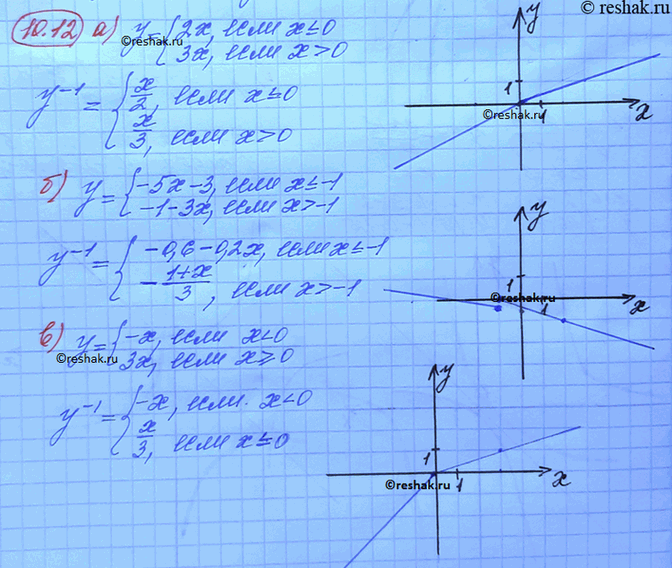 © reshak.ru
10.12 а) y = { 2x, если x ≤ 0
3x, если x > 0
©reshak.ru
y⁻¹ = { x/2, если x ≤ 0
x/3, если x > 0
y
1
©reshak.ru
1
x
б) y = { -5x-3, если x ≤ -1
-1-3x, если x > -1
y⁻¹ = { -0,6-0,2x, если x ≤ -1
-(1+x)/3, если x > -1
y
1
©reshak.ru
1
x
в) y = { -x, если x < 0
3x, если x ≥ 0
©reshak.ru
y⁻¹ = { -x, если x < 0
x/3, если x ≤ 0
y
1
©reshak.ru
1
x